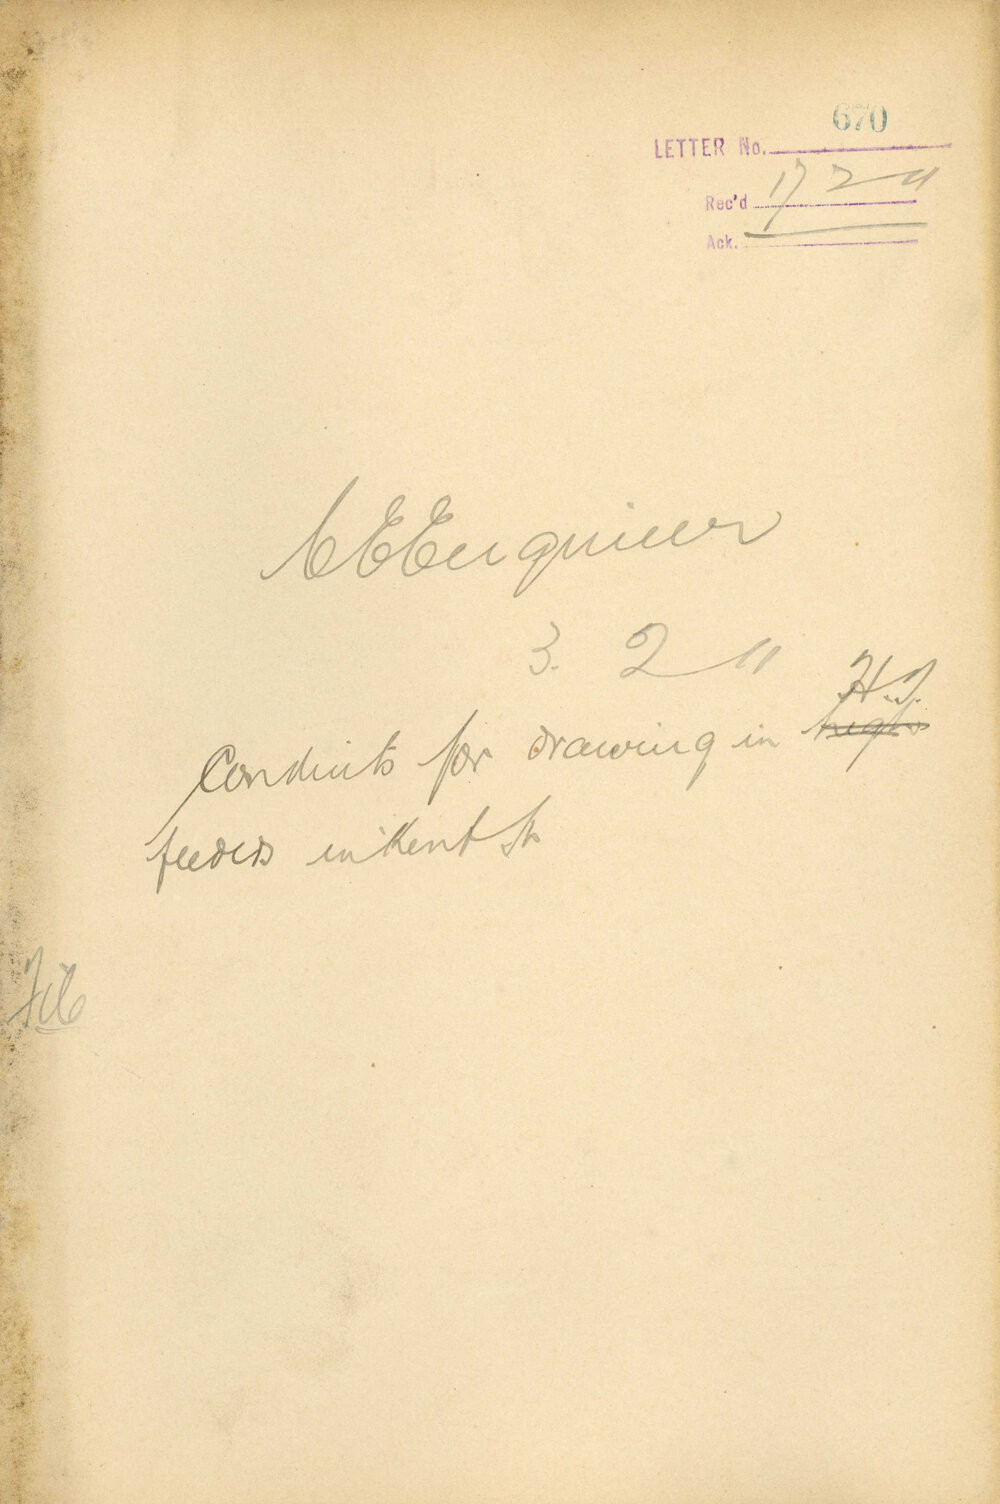 670
LETTER No.
Rec'd 17 2 11
Ack.
C E Engineer
3. 2 11
H.T.
Conduits for drawing in high
feeders in Kent St
File